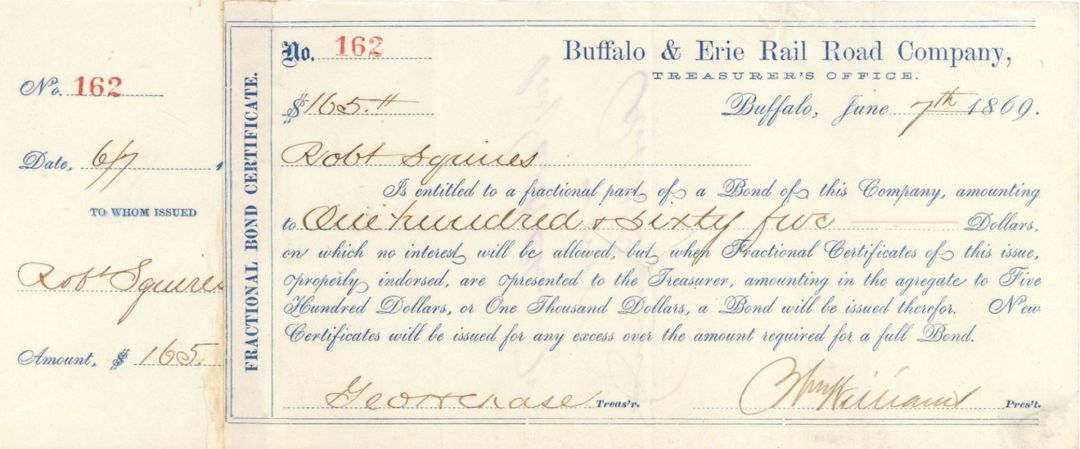 No. 162
Date, 6/7
TO WHOM ISSUED
Robt Squires
Amount, $ 165.
FRACTIONAL BOND CERTIFICATE.
No. 162
Buffalo & Erie Rail Road Company,
TREASURER'S OFFICE.
$165.
Buffalo, June 7th 1869.
Robt Squires
Is entitled to a fractional part of a Bond of this Company, amounting
to One hundred & sixty five Dollars,
on which no interest will be allowed, but when Fractional Certificates of this issue,
properly indorsed, are presented to the Treasurer, amounting in the agregate to Five
Hundred Dollars, or One Thousand Dollars, a Bond will be issued therefor. New
Certificates will be issued for any excess over the amount required for a full Bond.
Treas'r.
Wm Williams Pres't.